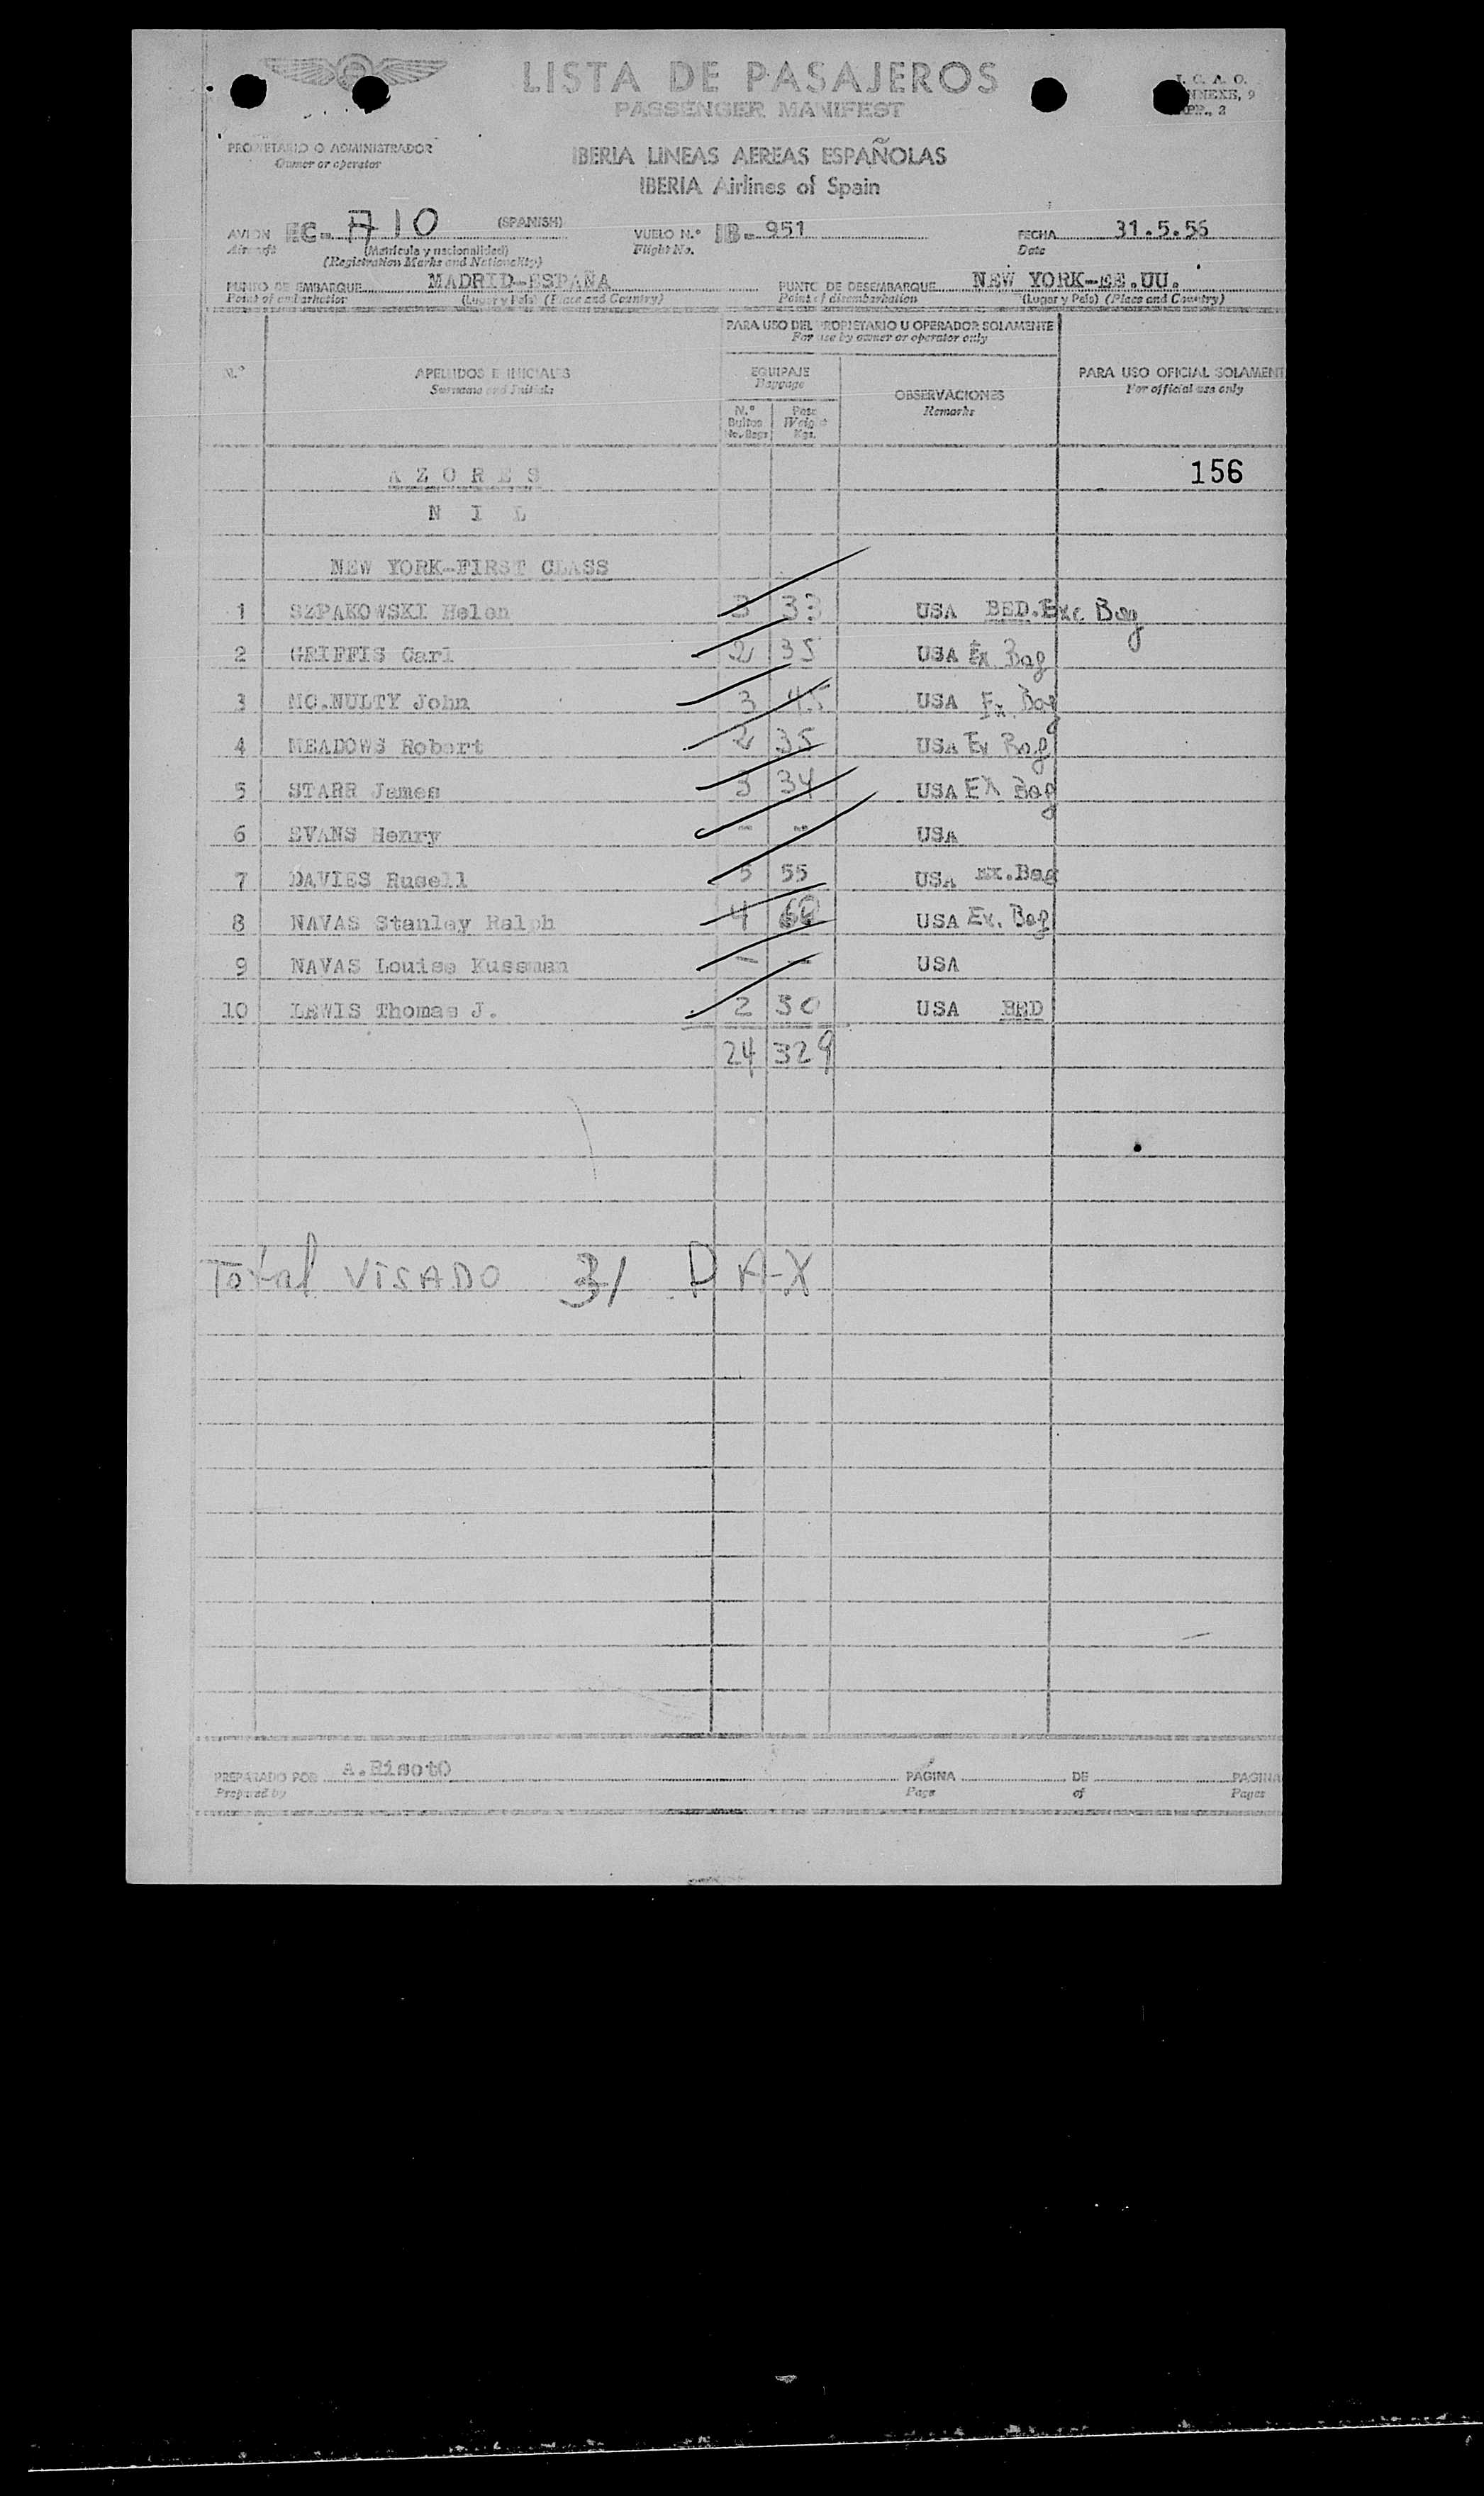 LISTA DE PASAJEROS
PASSENGER MANIFEST
I. C. A. O.
ANNEXE, 9
APP., 3
PROPIETARIO O ADMINISTRADOR
Owner or operator
IBERIA LINEAS AEREAS ESPAÑOLAS
IBERIA Airlines of Spain
AVION EC- A10 (SPANISH) VUELO N.º IB-951 FECHA 31.5.56
Aircraft (Matrícula y nacionalidad) Flight No. Date
(Registration Marks and Nationality)
PUNTO DE EMBARQUE MADRID-ESPAÑA PUNTO DE DESEMBARQUE NEW YORK-EE.UU.
Point of embarkation (Lugar y País) (Place and Country) Point of disembarkation (Lugar y País) (Place and Country)
PARA USO DEL PROPIETARIO U OPERADOR SOLAMENTE
For use by owner or operator only
N.º APELLIDOS E INICIALES EQUIPAJE PARA USO OFICIAL SOLAMENT
Surname and Initials Baggage For official use only
OBSERVACIONES
Remarks
N.º Bultos No. Bags Peso Weight Kgs.
AZORES 156
NIL
NEW YORK-FIRST CLASS
1 SZPAKOWSKI Helen 3 33 USA BED. Exc. Bag
2 GRIFFIS Carl 2 35 USA Ex Bag
3 MC.NULTY John 3 45 USA Ex. Bag
4 MEADOWS Robert 2 35 USA Ex Bag
5 STARR James 3 34 USA EX Bag
6 EVANS Henry - - USA
7 DAVIES Rusell 5 55 USA Ex. Bag
8 NAVAS Stanley Ralph 4 USA Ex. Bag
9 NAVAS Louise Kussman - - USA
10 LEWIS Thomas J. 2 30 USA BED
24 329
Total VISADO 31 PAX
PREPARADO POR A.Risoto PAGINA DE PAGINA
Prepared by Page of Pages